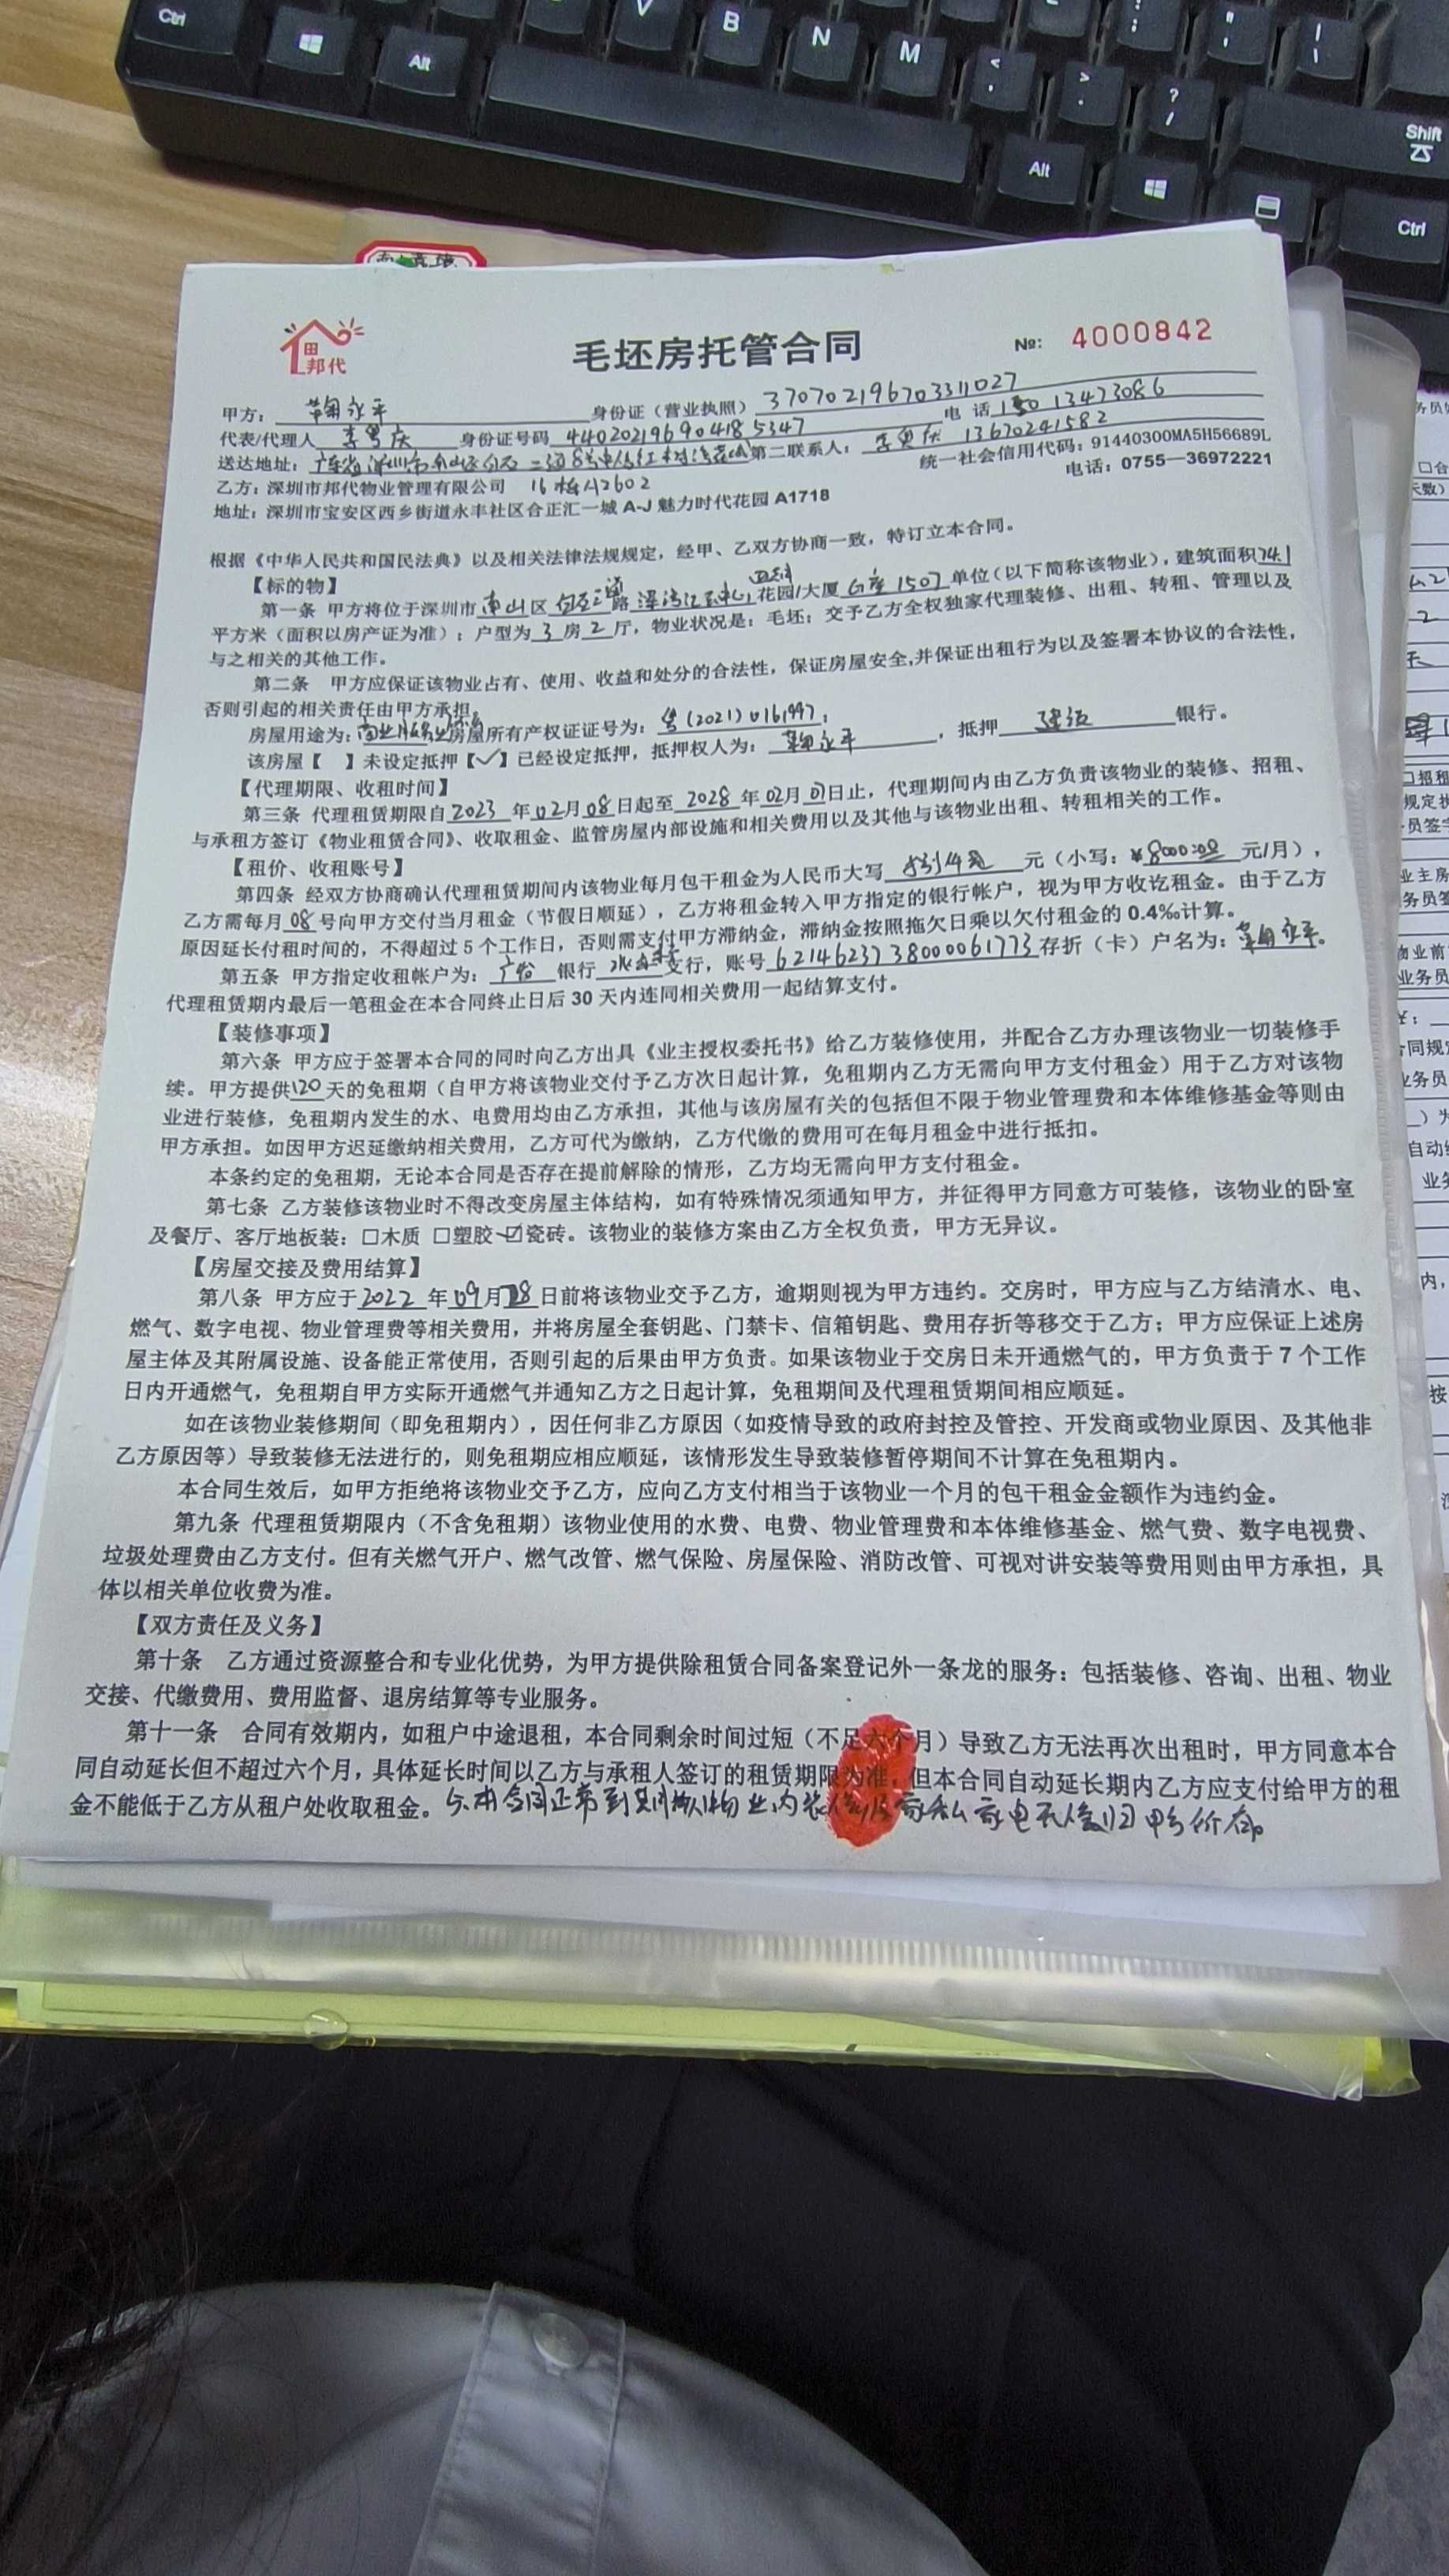 Ctrl
Alt
V
B
N
M
<
,
>
.
?
/
:
;
"
'
|
\
Alt
Shift
Ctrl
邦代
毛坯房托管合同
№: 4000842
甲方: 鞠永平 身份证（营业执照）370702196703311027
代表/代理人 李粤庆 身份证号码 440202196904185347 电 话 15013473086
送达地址: 广东省深圳市南山区白石二道8号中信红树湾花城 第二联系人: 李粤庆 13670241582
乙方: 深圳市邦代物业管理有限公司 16栋A2602 统一社会信用代码: 91440300MA5H56689L
地址: 深圳市宝安区西乡街道永丰社区合正汇一城 A-J 魅力时代花园 A1718 电话: 0755—36972221
根据《中华人民共和国民法典》以及相关法律法规规定，经甲、乙双方协商一致，特订立本合同。
【标的物】
第一条 甲方将位于深圳市南山区白石三道路深湾汇云中心四期花园/大厦 G座1507 单位(以下简称该物业)，建筑面积74.1
平方米（面积以房产证为准）；户型为 3 房 2 厅，物业状况是：毛坯；交予乙方全权独家代理装修、出租、转租、管理以及
与之相关的其他工作。
第二条 甲方应保证该物业占有、使用、收益和处分的合法性，保证房屋安全,并保证出租行为以及签署本协议的合法性，
否则引起的相关责任由甲方承担。
房屋用途为: 商业服务业 房屋所有产权证证号为: 粤(2021)0161997;
该房屋【 】未设定抵押【✓】已经设定抵押，抵押权人为: 鞠永平 ，抵押 建设 银行。
【代理期限、收租时间】
第三条 代理租赁期限自2023 年02月08日起至 2028 年02月 日止，代理期间内由乙方负责该物业的装修、招租、
与承租方签订《物业租赁合同》、收取租金、监管房屋内部设施和相关费用以及其他与该物业出租、转租相关的工作。
【租价、收租账号】
第四条 经双方协商确认代理租赁期间内该物业每月包干租金为人民币大写 捌仟元 元（小写: ¥8000.00 元/月），
乙方需每月08号向甲方交付当月租金（节假日顺延），乙方将租金转入甲方指定的银行帐户，视为甲方收讫租金。由于乙方
原因延长付租时间的，不得超过 5 个工作日，否则需支付甲方滞纳金，滞纳金按照拖欠日乘以欠付租金的 0.4‰计算。
第五条 甲方指定收租帐户为: 广发 银行 支行，账号 6214623738000061773 存折（卡）户名为: 鞠永平。
代理租赁期内最后一笔租金在本合同终止日后 30 天内连同相关费用一起结算支付。
【装修事项】
第六条 甲方应于签署本合同的同时向乙方出具《业主授权委托书》给乙方装修使用，并配合乙方办理该物业一切装修手
续。甲方提供120天的免租期（自甲方将该物业交付予乙方次日起计算，免租期内乙方无需向甲方支付租金）用于乙方对该物
业进行装修，免租期内发生的水、电费用均由乙方承担，其他与该房屋有关的包括但不限于物业管理费和本体维修基金等则由
甲方承担。如因甲方迟延缴纳相关费用，乙方可代为缴纳，乙方代缴的费用可在每月租金中进行抵扣。
本条约定的免租期，无论本合同是否存在提前解除的情形，乙方均无需向甲方支付租金。
第七条 乙方装修该物业时不得改变房屋主体结构，如有特殊情况须通知甲方，并征得甲方同意方可装修，该物业的卧室
及餐厅、客厅地板装: □木质 □塑胶 ☑瓷砖。该物业的装修方案由乙方全权负责，甲方无异议。
【房屋交接及费用结算】
第八条 甲方应于2022 年09月28日前将该物业交予乙方，逾期则视为甲方违约。交房时，甲方应与乙方结清水、电、
燃气、数字电视、物业管理费等相关费用，并将房屋全套钥匙、门禁卡、信箱钥匙、费用存折等移交于乙方；甲方应保证上述房
屋主体及其附属设施、设备能正常使用，否则引起的后果由甲方负责。如果该物业于交房日未开通燃气的，甲方负责于 7 个工作
日内开通燃气，免租期自甲方实际开通燃气并通知乙方之日起计算，免租期间及代理租赁期间相应顺延。
如在该物业装修期间（即免租期内），因任何非乙方原因（如疫情导致的政府封控及管控、开发商或物业原因、及其他非
乙方原因等）导致装修无法进行的，则免租期应相应顺延，该情形发生导致装修暂停期间不计算在免租期内。
本合同生效后，如甲方拒绝将该物业交予乙方，应向乙方支付相当于该物业一个月的包干租金金额作为违约金。
第九条 代理租赁期限内（不含免租期）该物业使用的水费、电费、物业管理费和本体维修基金、燃气费、数字电视费、
垃圾处理费由乙方支付。但有关燃气开户、燃气改管、燃气保险、房屋保险、消防改管、可视对讲安装等费用则由甲方承担，具
体以相关单位收费为准。
【双方责任及义务】
第十条 乙方通过资源整合和专业化优势，为甲方提供除租赁合同备案登记外一条龙的服务：包括装修、咨询、出租、物业
交接、代缴费用、费用监督、退房结算等专业服务。
第十一条 合同有效期内，如租户中途退租，本合同剩余时间过短（不足六个月）导致乙方无法再次出租时，甲方同意本合
同自动延长但不超过六个月，具体延长时间以乙方与承租人签订的租赁期限为准，但本合同自动延长期内乙方应支付给甲方的租
金不能低于乙方从租户处收取租金。 本合同正常到期后物业内装修及家私家电无偿归甲方所有。